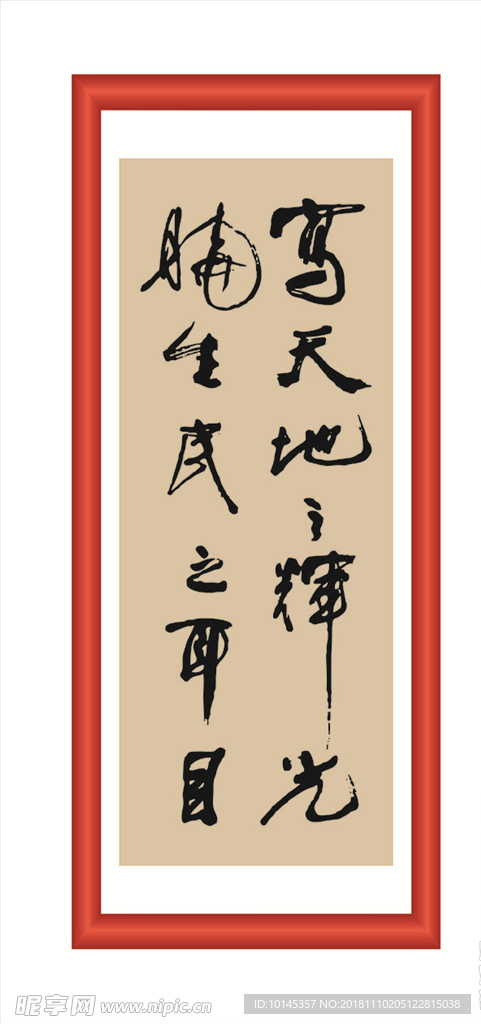 寫天地之輝光
曉生民之耳目
昵享网 www.nipic.cn
ID:10145357 NO:20181110205122815038